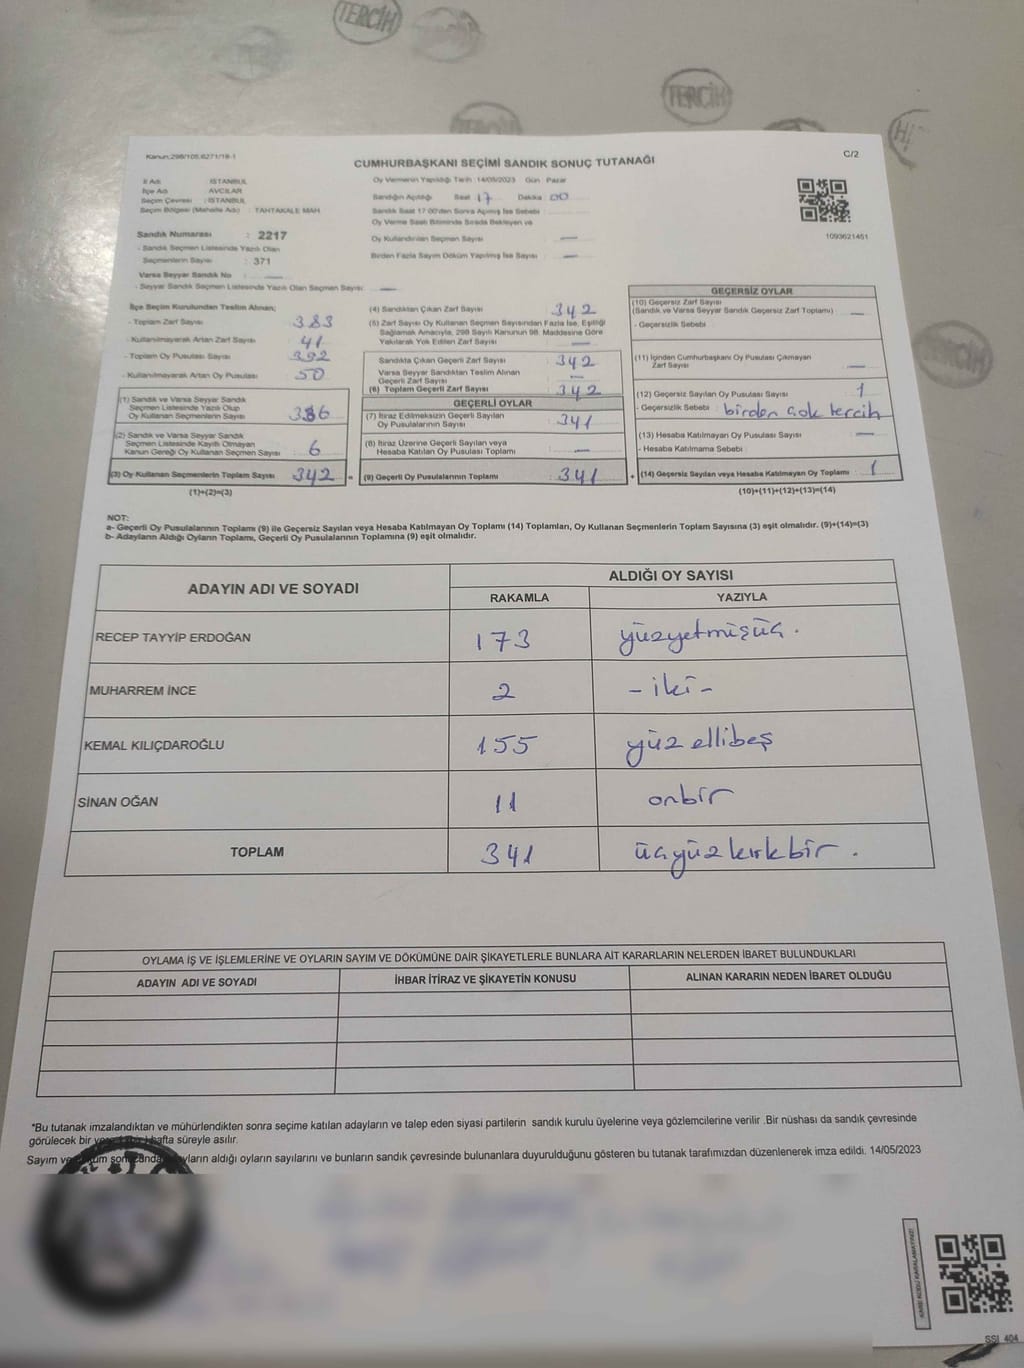 TERCİH
TERCİH
Kanun:298/105,6271/18-1
CUMHURBAŞKANI SEÇİMİ SANDIK SONUÇ TUTANAĞI
C/2
İl Adı : İSTANBUL
İlçe Adı : AVCILAR
Seçim Çevresi : İSTANBUL
Seçim Bölgesi (Mahalle Adı) : TAHTAKALE MAH
Sandık Numarası : 2217
- Sandık Seçmen Listesinde Yazılı Olan
Seçmenlerin Sayısı : 371
Varsa Seyyar Sandık No :
- Seyyar Sandık Seçmen Listesinde Yazılı Olan Seçmen Sayısı: —
Oy Vermenin Yapıldığı Tarih :14/05/2023 Gün Pazar
Sandığın Açıldığı Saat 17 Dakika 00
Sandık Saat 17.00'den Sonra Açılmış İse Sebebi
Oy Verme Saati Bitiminde Sırada Bekleyen ve
Oy Kullandırılan Seçmen Sayısı —
Birden Fazla Sayım Döküm Yapılmış İse Sayısı —
1093621451
İlçe Seçim Kurulundan Teslim Alınan;
- Toplam Zarf Sayısı 383
- Kullanılmayarak Artan Zarf Sayısı 41
- Toplam Oy Pusulası Sayısı 392
- Kullanılmayarak Artan Oy Pusulası 50
(1) Sandık ve Varsa Seyyar Sandık
Seçmen Listesinde Yazılı Olup
Oy Kullanan Seçmenlerin Sayısı
(2) Sandık ve Varsa Seyyar Sandık
Seçmen Listesinde Kayıtlı Olmayan
Kanun Gereği Oy Kullanan Seçmen Sayısı 6
(3) Oy Kullanan Seçmenlerin Toplam Sayısı 342 =
(1)+(2)=(3)
(4) Sandıktan Çıkan Zarf Sayısı 342
(5) Zarf Sayısı Oy Kullanan Seçmen Sayısından Fazla İse, Eşitliği
Sağlamak Amacıyla, 298 Sayılı Kanunun 98. Maddesine Göre
Yakılarak Yok Edilen Zarf Sayısı —
Sandıkta Çıkan Geçerli Zarf Sayısı 342
Varsa Seyyar Sandıktan Teslim Alınan
Geçerli Zarf Sayısı —
(6) Toplam Geçerli Zarf Sayısı 342
GEÇERLİ OYLAR
(7) İtiraz Edilmeksizin Geçerli Sayılan
Oy Pusulalarının Sayısı 341
(8) İtiraz Üzerine Geçerli Sayılan veya
Hesaba Katılan Oy Pusulası Toplamı —
(9) Geçerli Oy Pusulalarının Toplamı 341 +
GEÇERSİZ OYLAR
(10) Geçersiz Zarf Sayısı
(Sandık ve Varsa Seyyar Sandık Geçersiz Zarf Toplamı) —
- Geçersizlik Sebebi
(11) İçinden Cumhurbaşkanı Oy Pusulası Çıkmayan
Zarf Sayısı —
(12) Geçersiz Sayılan Oy Pusulası Sayısı 1
- Geçersizlik Sebebi : birden çok tercih
(13) Hesaba Katılmayan Oy Pusulası Sayısı —
- Hesaba Katılmama Sebebi :
(14) Geçersiz Sayılan veya Hesaba Katılmayan Oy Toplamı 1
(10)+(11)+(12)+(13)=(14)
NOT:
a- Geçerli Oy Pusulalarının Toplamı (9) ile Geçersiz Sayılan veya Hesaba Katılmayan Oy Toplamı (14) Toplamları, Oy Kullanan Seçmenlerin Toplam Sayısına (3) eşit olmalıdır. (9)+(14)=(3)
b- Adayların Aldığı Oyların Toplamı, Geçerli Oy Pusulalarının Toplamına (9) eşit olmalıdır.
ADAYIN ADI VE SOYADI
ALDIĞI OY SAYISI
RAKAMLA YAZIYLA
RECEP TAYYİP ERDOĞAN 173 yüzyetmişüç.
MUHARREM İNCE 2 -iki-
KEMAL KILIÇDAROĞLU 155 yüz ellibeş
SİNAN OĞAN 11 onbir
TOPLAM 341 üçyüz kırkbir.
OYLAMA İŞ VE İŞLEMLERİNE VE OYLARIN SAYIM VE DÖKÜMÜNE DAİR ŞİKAYETLERLE BUNLARA AİT KARARLARIN NELERDEN İBARET BULUNDUKLARI
ADAYIN ADI VE SOYADI İHBAR İTİRAZ VE ŞİKAYETİN KONUSU ALINAN KARARIN NEDEN İBARET OLDUĞU
*Bu tutanak imzalandıktan ve mühürlendikten sonra seçime katılan adayların ve talep eden siyasi partilerin sandık kurulu üyelerine veya gözlemcilerine verilir .Bir nüshası da sandık çevresinde
görülecek bir hafta süreyle asılır.
Sayım aldığı oyların sayılarını ve bunların sandık çevresinde bulunanlara duyurulduğunu gösteren bu tutanak tarafımızdan düzenlenerek imza edildi. 14/05/2023
KARE KODU KARALAMAYINIZ!
SSL 404